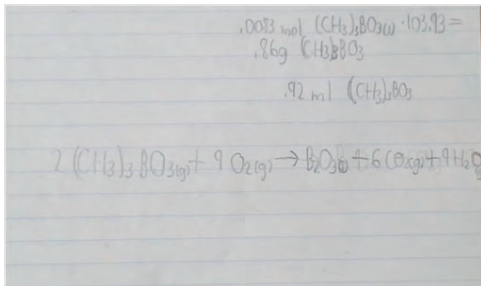 .0083 mol (CH3)3BO3(l) · 103.93 =
.86g (CH3)3BO3
.92 ml (CH3)3BO3
2 (CH3)3 BO3(g) + 9 O2(g) → B2O3(s) + 6 CO2(g) + 9 H2O